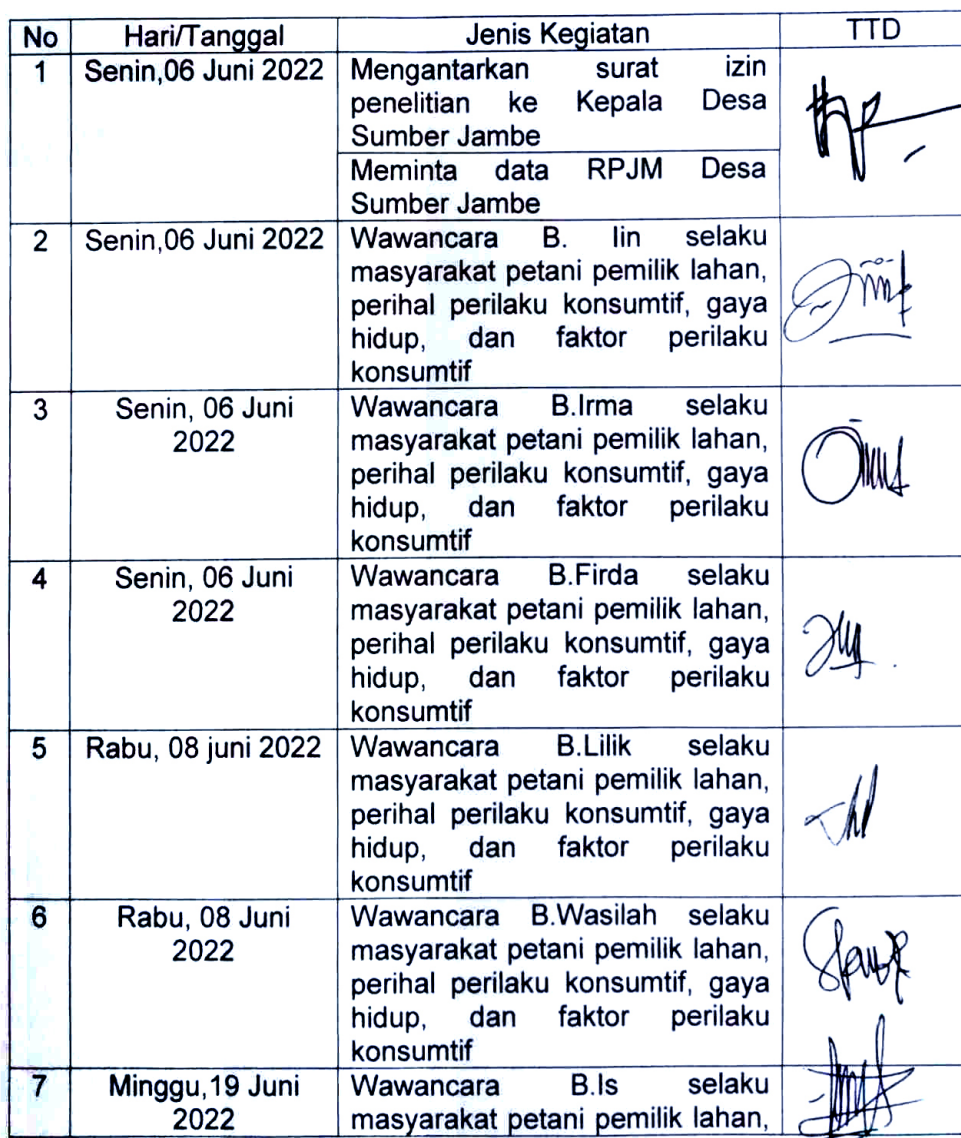 No Hari/Tanggal Jenis Kegiatan TTD
1 Senin,06 Juni 2022 Mengantarkan surat izin
penelitian ke Kepala Desa
Sumber Jambe
Meminta data RPJM Desa
Sumber Jambe
2 Senin,06 Juni 2022 Wawancara B. Iin selaku
masyarakat petani pemilik lahan,
perihal perilaku konsumtif, gaya
hidup, dan faktor perilaku
konsumtif
3 Senin, 06 Juni Wawancara B.Irma selaku
2022 masyarakat petani pemilik lahan,
perihal perilaku konsumtif, gaya
hidup, dan faktor perilaku
konsumtif
4 Senin, 06 Juni Wawancara B.Firda selaku
2022 masyarakat petani pemilik lahan,
perihal perilaku konsumtif, gaya
hidup, dan faktor perilaku
konsumtif
5 Rabu, 08 juni 2022 Wawancara B.Lilik selaku
masyarakat petani pemilik lahan,
perihal perilaku konsumtif, gaya
hidup, dan faktor perilaku
konsumtif
6 Rabu, 08 Juni Wawancara B.Wasilah selaku
2022 masyarakat petani pemilik lahan,
perihal perilaku konsumtif, gaya
hidup, dan faktor perilaku
konsumtif
7 Minggu,19 Juni Wawancara B.Is selaku
2022 masyarakat petani pemilik lahan,